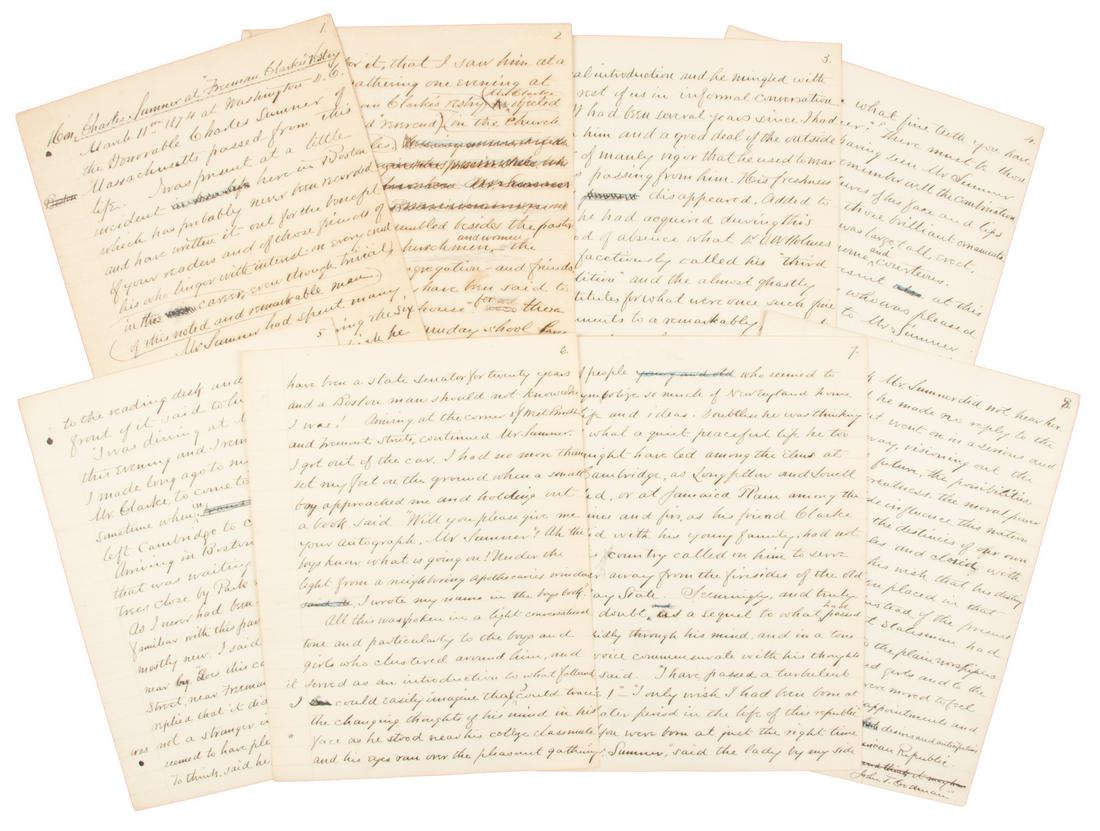 1.
Hon. Charles Sumner at "Freeman Clarke's" Vestry
March 11th 1874 at Washington D.C.
the Honorable Charles Sumner of
Massachusetts passed from this
life. I was present at a little
incident here in Boston
which has probably never been recorded
and have written it out for the benefit
of your readers and of those friends of
his who linger with interest on every
in the career, even though trivial,
of this noted and remarkable man
Mr. Sumner had spent many
2.
for it, that I saw him at a
gathering one evening at
Clarke's vestry (Mr. Clarke
objected
"reverend) in the church
assembled besides the pastor
and women
churchmen, the
congregation - and friends
have been said to
for
house" these
Sunday school
3.
al introduction and he mingled with
rest of us in informal conversation
It had been several years since I had
him and a good deal of the outside
of manly vigor that he used to wear
passing from him. His freshness
disappeared. Added to
he had acquired during this
of absence what Dr. O W Holmes
facetiously called his "third
dition" and the almost ghastly
stitutes for what were once such fine
ments to a remarkably
4.
what fine teeth you have
There must be those
having seen Mr Sumner
remember well the combination
of his face and lips
those brilliant ornaments
was large, tall, erect,
and courteous.
at this
who was pleased
to Mr Sumner
5
to the reading desk and
front of it said to
"I was dining at
this evening and I rem
I made long ago to
Mr. Clarke to come to
sometime when in
left Cambridge to c
Arriving in Boston
that was waiting
trees close by Park
As I never had been
familiar with this par
mostly new. I said
near by, "Does this ca
Street, near Freeman
replied that it did
was not a stranger in
seemed to have ple
To think, said he
6.
have been a state Senator for twenty years
and a Boston man should not know who
I was! Arriving at the corner of West Brookline
and Tremont Streets, continued Mr. Sumner.
I got out of the car. I had no more than
set my feet on the ground when a small
boy approached me and holding out
a book said "Will you please give me
your autograph, Mr Sumner"? Ah the
boys know what is going on! Under the
light from a neighboring apothecaries window
I wrote my name in the boys book.
All this was spoken in a light conversational
tone and particularly to the boys and
girls who clustered around him, and
it served as an introduction to what followed
I could easily imagine that I could trace
the changing thoughts of his mind in his
face as he stood near his college classmate
and his eyes ran over the pleasant gathering
7.
people young and old who seemed to
symbolize so much of New England home
life and ideas. Doubtless he was thinking
what a quiet peaceful life he too
might have led among the Elms at
Cambridge, as Longfellow and Lowell
or at Jamaica Plain among the
and firs, as his friend Clarke
with his young family, had not
country called on him to serve
away from the firesides of the old
Bay State. Seemingly, and truly
doubt, as a sequel to what had passed
through his mind, and in a tone
voice commensurate with his thought
said. "I have passed a turbulent
I only wish I had been born at
later period in the life of this republic
you were born at just the right time
Sumner," said the lady by my side
8.
Mr Sumner did not hear her
he made no reply to the
went on in a serious and
way, visioning out the
future, the possibilities,
greatness, the moral power
influence this nation
the destinies of our own
and closing with
his wish that his destiny
been placed in that
instead of the present
Statesman had
to the plain worshipers
girls and to the
were moved to feel
appointments and
and anticipations
American Republic.
John T. Codman